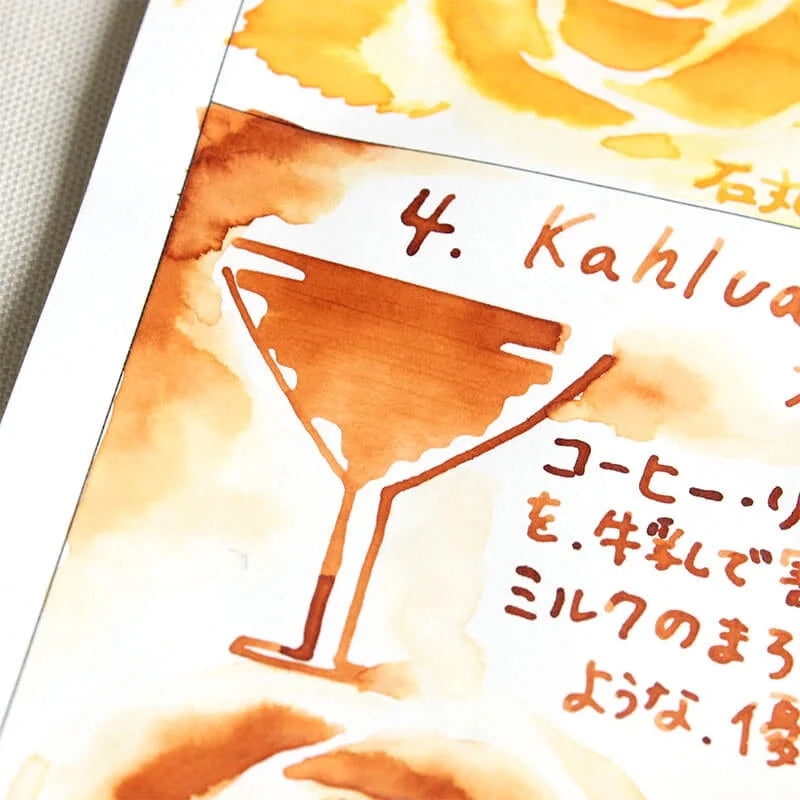 石丸
4. Kahlua
コーヒー・リ
を.牛乳で割
ミルクのまろ
ような.優